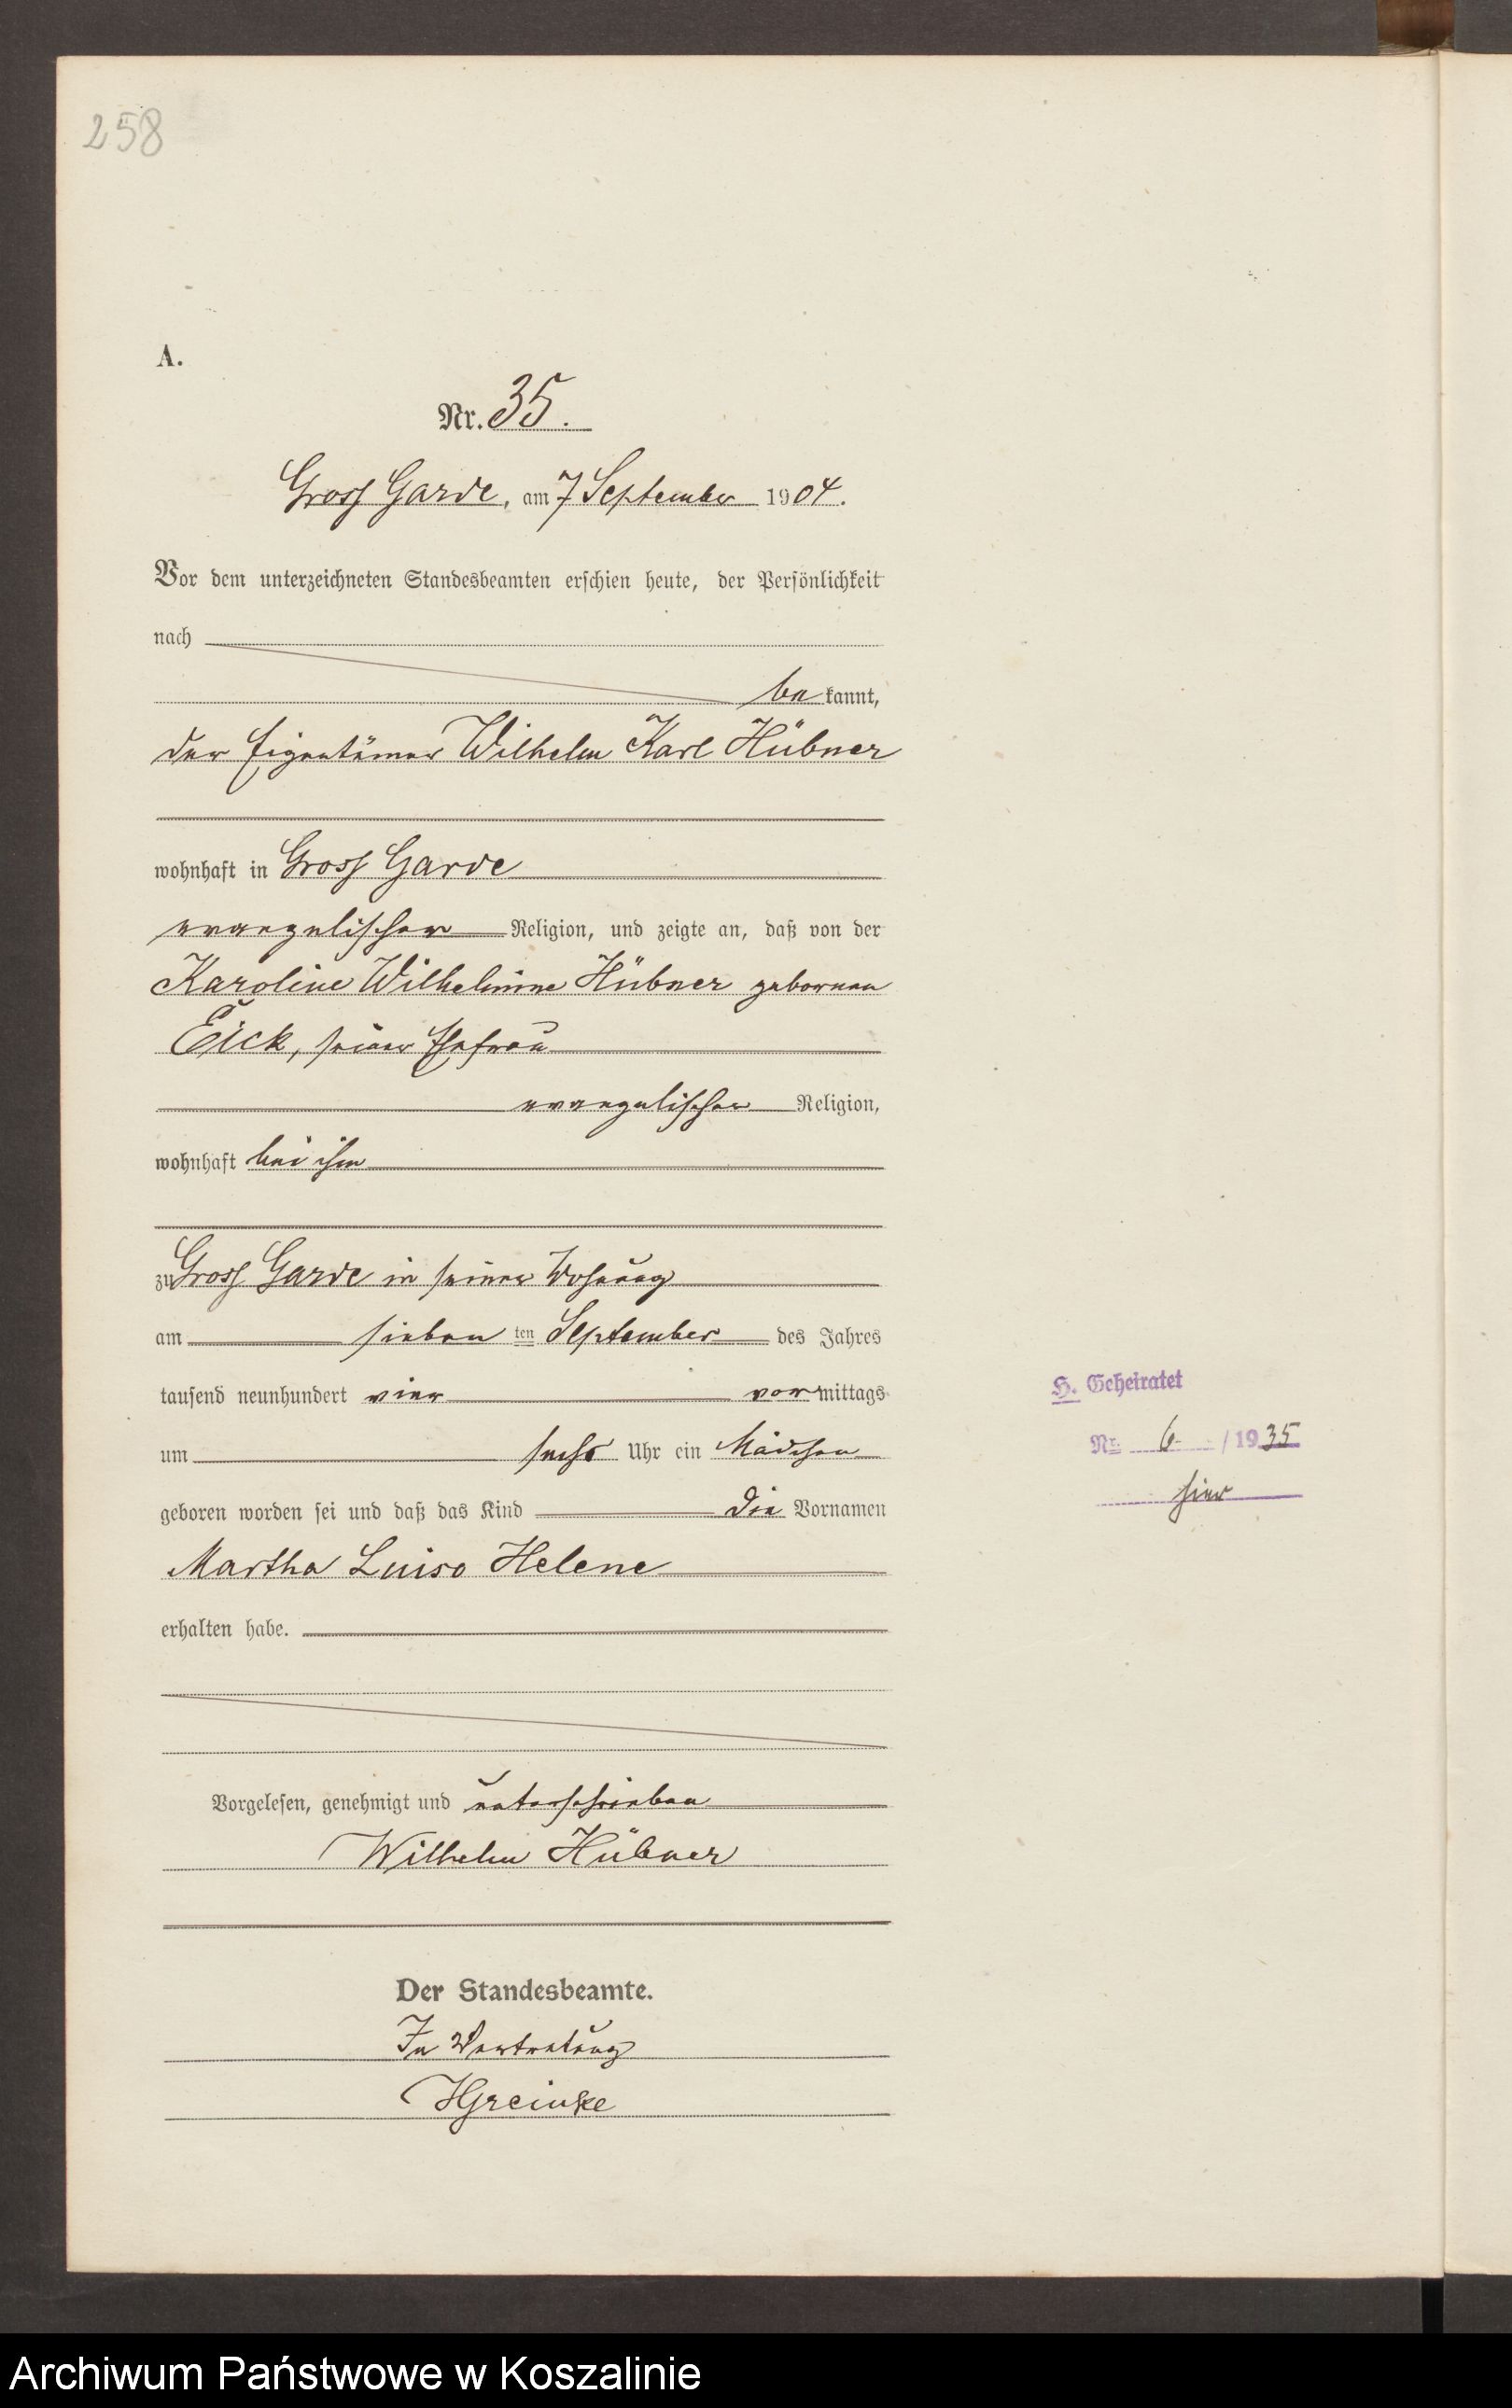 258
A.
Nr. 35.
Gross Garde, am 7 September 1904.
Vor dem unterzeichneten Standesbeamten erschien heute, der Persönlichkeit
nach
be kannt,
der Eigentümer Wilhelm Karl Hübner
wohnhaft in Gross Garde
evangelischer Religion, und zeigte an, daß von der
Karoline Wilhelmine Hübner geborenen
Eick, seiner Ehefrau
evangelischer Religion,
wohnhaft bei ihm
zu Gross Garde in seiner Wohnung
am sieben ten September des Jahres
tausend neunhundert vier vormittags
um sechs Uhr ein Mädchen
geboren worden sei und daß das Kind die Vornamen
Martha Luise Helene
erhalten habe.
H. Geheiratet
Nr. 6 / 1935
hier
Vorgelesen, genehmigt und unterschrieben
Wilhelm Hübner
Der Standesbeamte.
In Vertretung
HGreinke
Archiwum Państwowe w Koszalinie